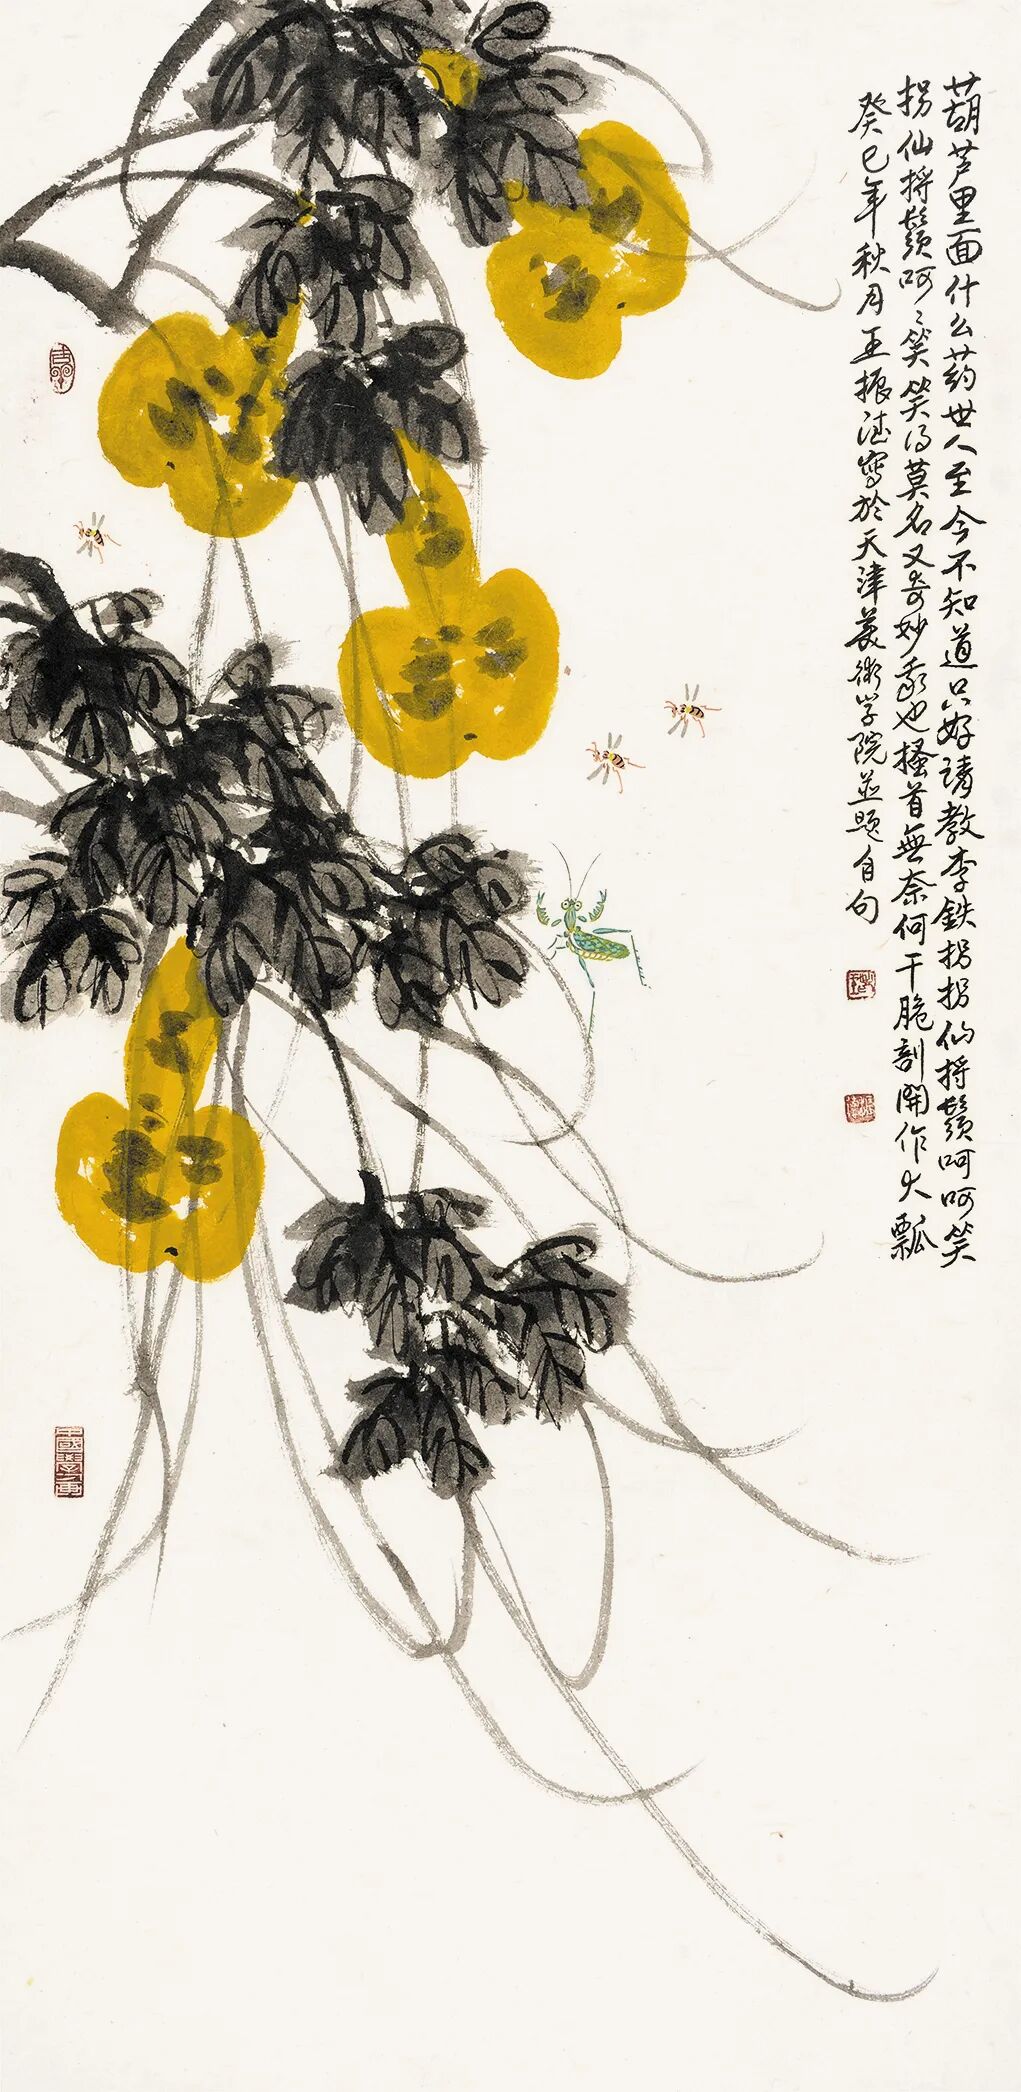 葫芦里面什么药世人至今不知道只好请教李鉄拐拐仙捋鬚呵呵笑
拐仙捋鬚呵〻笑笑得莫名又奇妙我也搔首無奈何干脆剖開作大瓢
癸巳年秋月王振德寫於天津美術学院並题自句
中國學畫